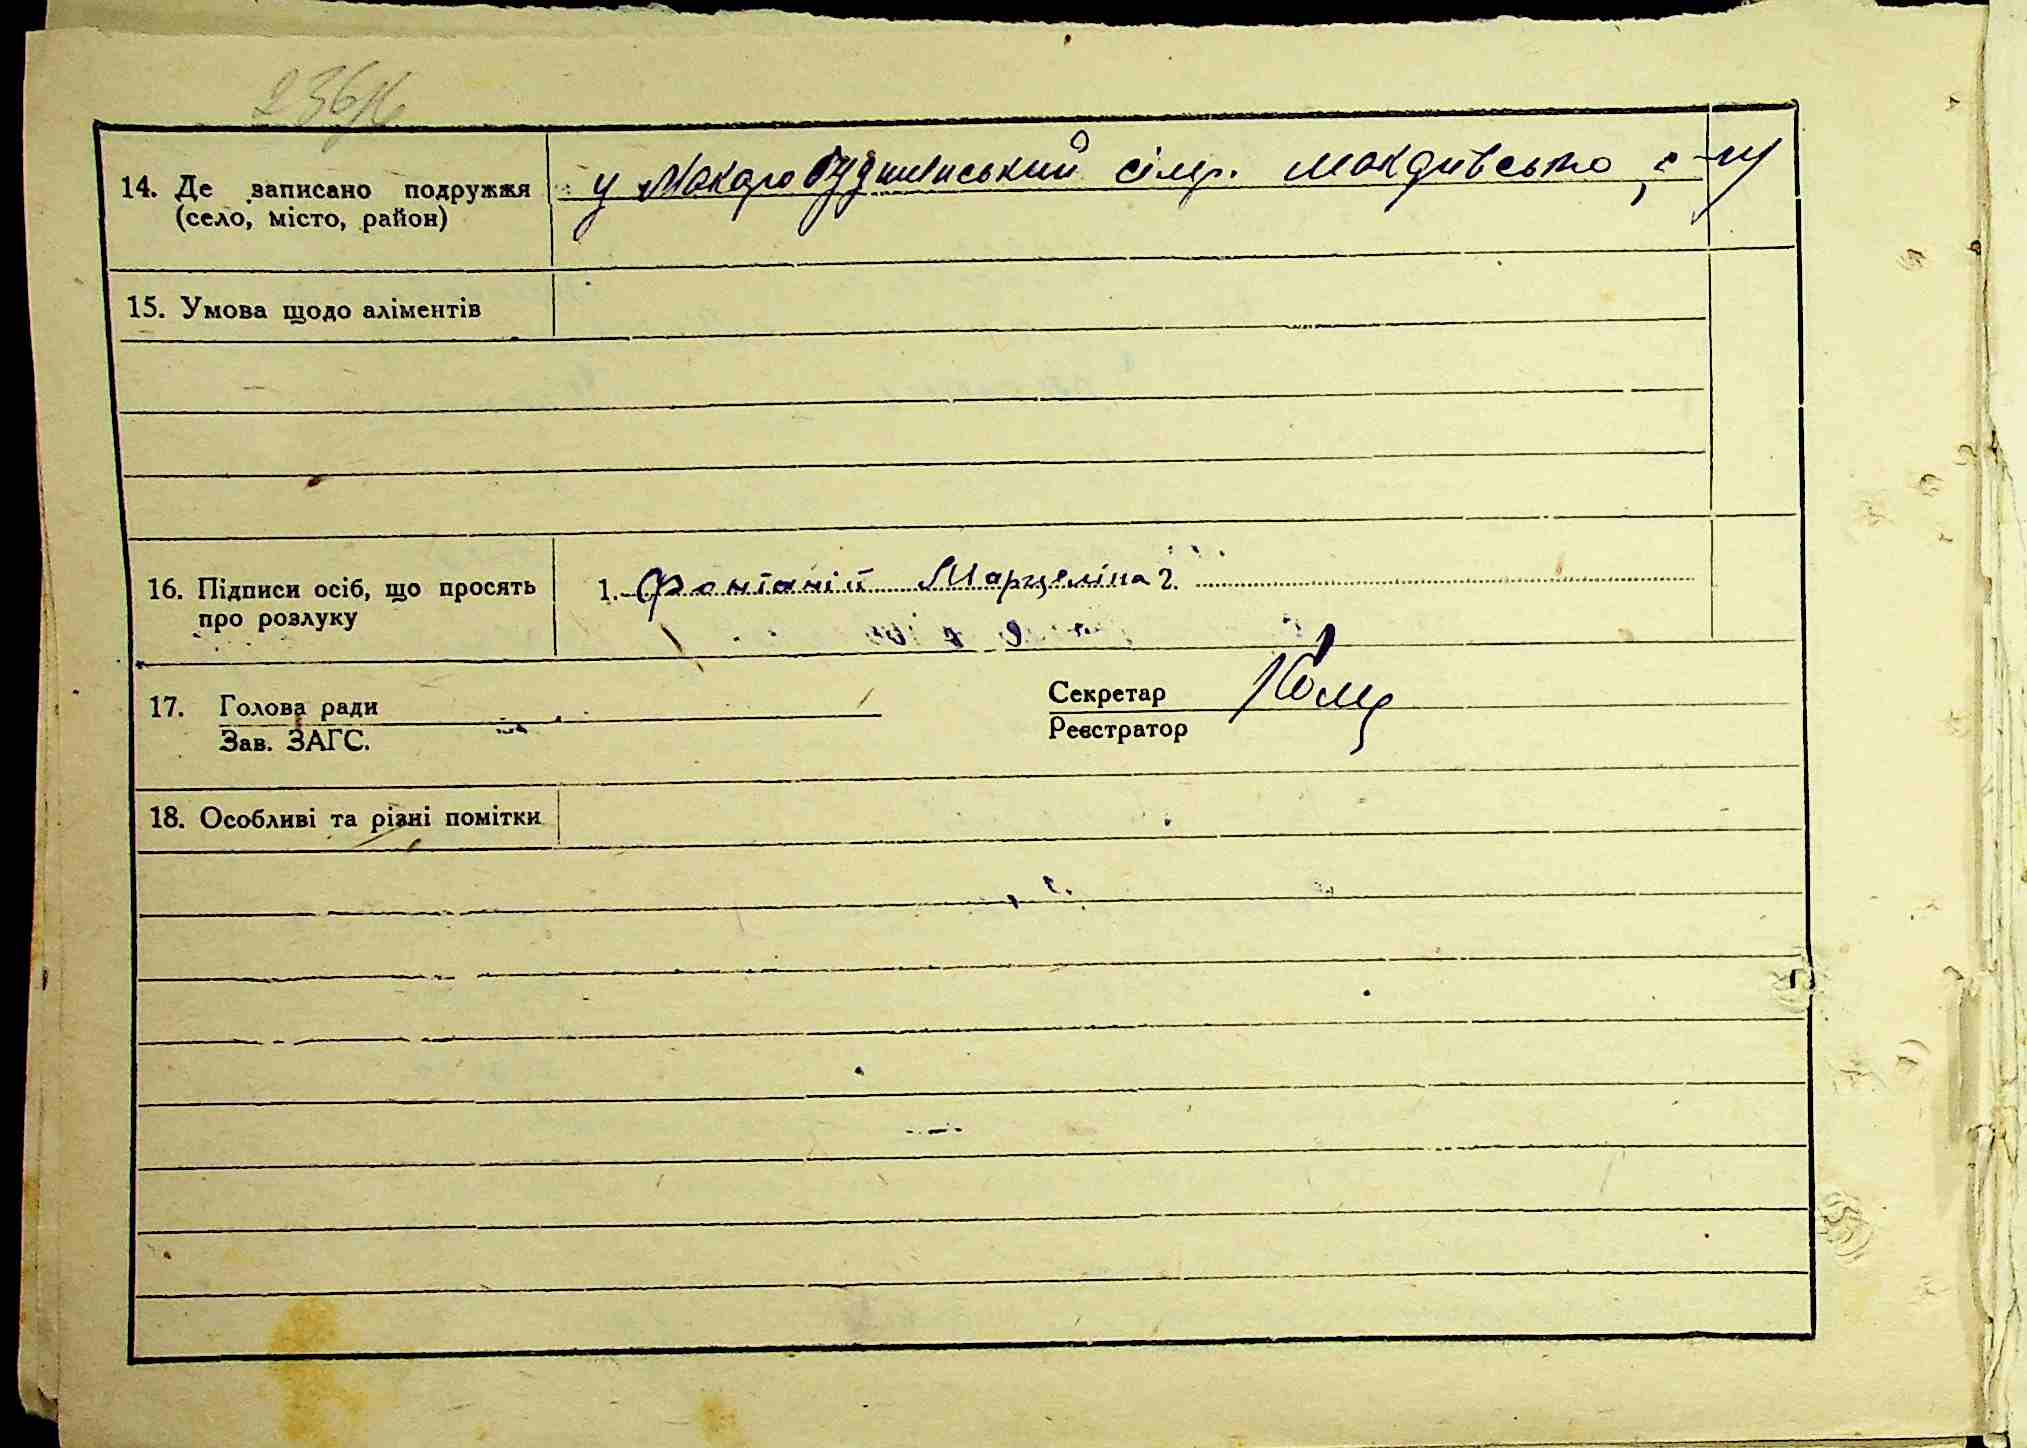 236/6
14. Де записано подружжя
(село, місто, район)
у Макаро Будинський сілр.
15. Умова щодо аліментів
16. Підписи осіб, що просять
про розлуку
1. Фонтаній Марцеліна 2.
17. Голова ради
Зав. ЗАГС.
Секретар
Реєстратор
18. Особливі та різні помітки